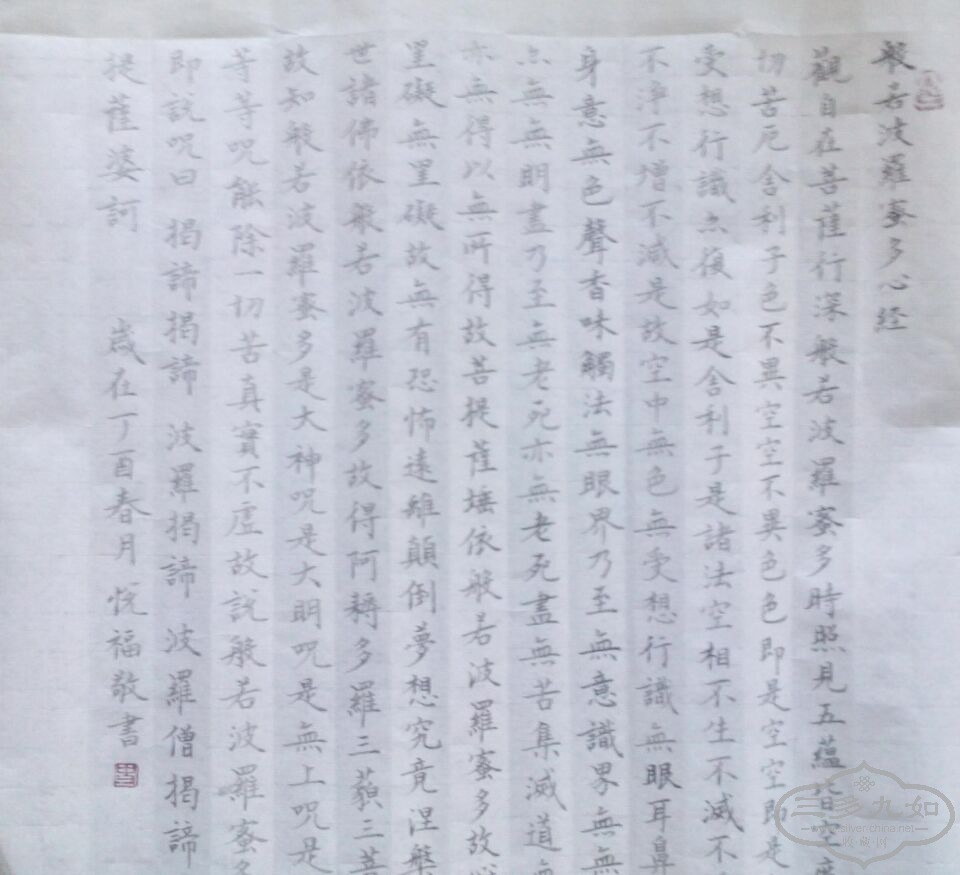 般若波羅蜜多心経
觀自在菩薩行深般若波羅蜜多時照見五蘊皆空度
切苦厄舍利子色不異空空不異色色即是空空即是
受想行識亦復如是舍利子是諸法空相不生不滅不
不淨不增不減是故空中無色無受想行識無眼耳鼻
身意無色聲香味觸法無眼界乃至無意識界無無
亦無無明盡乃至無老死亦無老死盡無苦集滅道無
亦無得以無所得故菩提薩埵依般若波羅蜜多故心
罣礙無罣礙故無有恐怖遠離顛倒夢想究竟涅槃
世諸佛依般若波羅蜜多故得阿耨多羅三藐三菩
故知般若波羅蜜多是大神呪是大明呪是無上呪是
等等呪能除一切苦真實不虛故說般若波羅蜜多
即說呪曰 揭諦揭諦 波羅揭諦 波羅僧揭諦
提薩婆訶 歲在丁酉春月悅福敬書
三多九如